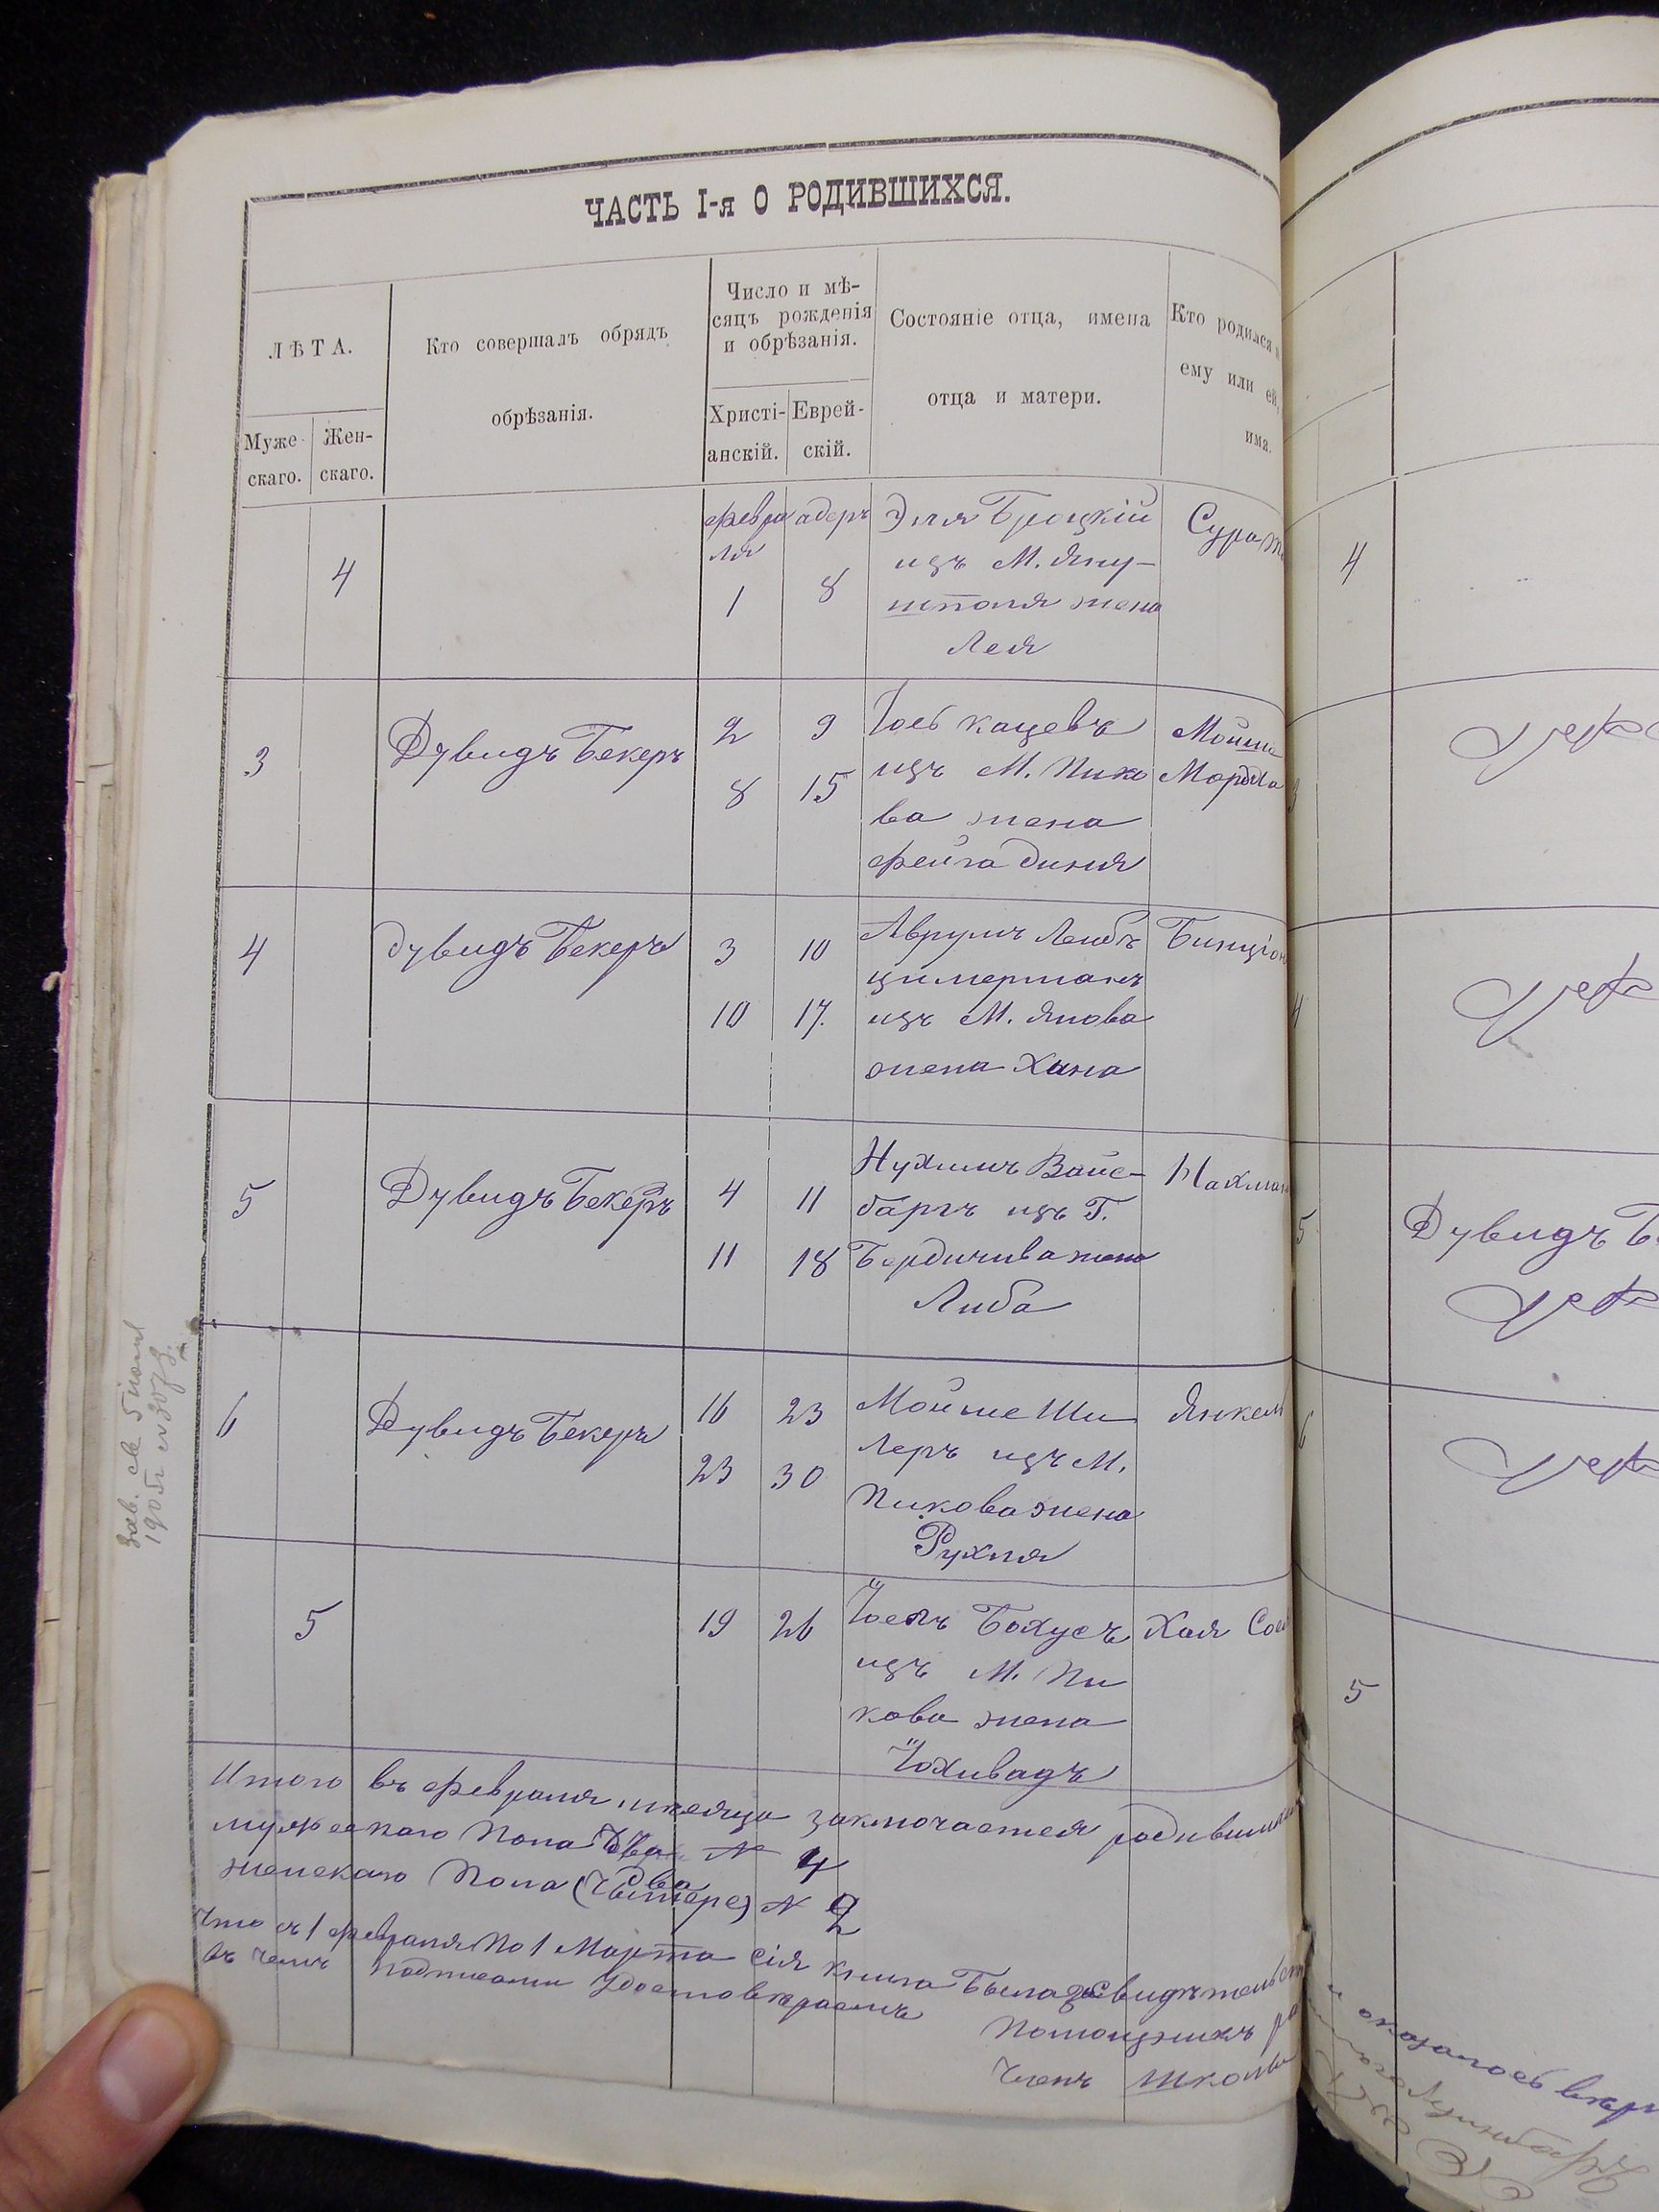 ЧАСТЬ I-я О РОДИВШИХСЯ.
ЛѢТА.
Муже-
скаго.
Жен-
скаго.
Кто совершалъ обрядъ
обрѣзанія.
Число и мѣ-
сяцъ рожденія
и обрѣзанія.
Христі-
анскій.
Еврей-
скій.
Состояніе отца, имена
отца и матери.
Кто родился и
ему или ей,
има.
4
февра
ля
1
адеръ
8
Эля Броцкій
изъ М. Яну-
шполя жена
Лея
4
3
Дувидъ Бекеръ
2
8
9
15
Іось кацевъ
изъ М. Пико
ва жена
фейга диня
Мойше
Мордха
3
4
дувидъ Бекеръ
3
10
10
17.
Аврумъ Лейбъ
цимерманъ
изъ М. Янова
жена Хана
Бинціон
4
5
Дувидъ Бекеръ
4
11
11
18
Нухимъ Вайс-
баргъ изъ Г.
Бердичива жена
Либа
Нахман
5
Дувидъ Б
6
Дувидъ Бекеръ
16
23
23
30
Мойше Ши
леръ изъ М.
Пикова жена
Рухля
Янкель
6
5
19
26
Бохусъ
изъ М. Пи
кова жена
Йохивадъ
Хая
5
Итого въ февраля месяца заключается родившихся
мужескаго Пола N 4
женскаго Пола два N 2
Что съ 1 февраля По 1 Марта Сія книга Была
въ чемъ Подписями Удостовѣраемъ
Помощникъ
Членъ школы
и оказалось
1905г